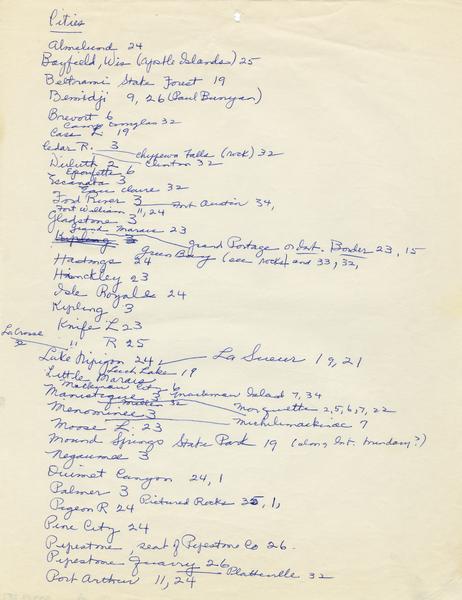 Cities
Almelund 24
Bayfield, Wis (Apostle Islands) 25
Beltrami State Forest 19
Bemidji 9, 26 (Paul Bunyan)
Brevort 6
Camp Douglas 32
Cass L. 19
Cedar R. 3
Chippewa Falls (rock) 32
Duluth 2
Clinton 32
Epoufette 6
Escanaba 3
Eau Claire 32
Ford River 3
Fort Austin 34,
Fort William 11, 24
Gladstone 3
Grand Marais 23
Kipling 3
Grand Portage or Int. Border 23, 15
Green Bay (see rocks) and 33, 32,
Hastings 24
Hinckley 23
Isle Royale 24
Kipling 3
Knife L 23
La Crosse 32
" R 25
Lake Nipigon 24
La Sueur 19, 21
Leech Lake 19
Little Marais
Mackinaw City 6
Manistique 3
Mackinac Island 7, 34
32
Marquette 2, 5, 6, 7, 22
Menominee 3
Michilimackinac 7
Moose L. 23
Mound Springs State Park 19 (along Int. boundary?)
Negaunee 3
Ouimet Canyon 24, 1
Palmer 3
Pictured Rocks 35, 1,
Pigeon R 24
Pine City 24
Pipestone, seat of Pipestone Co 26.
Pipestone Quarry 26
Platteville 32
Port Arthur 11, 24